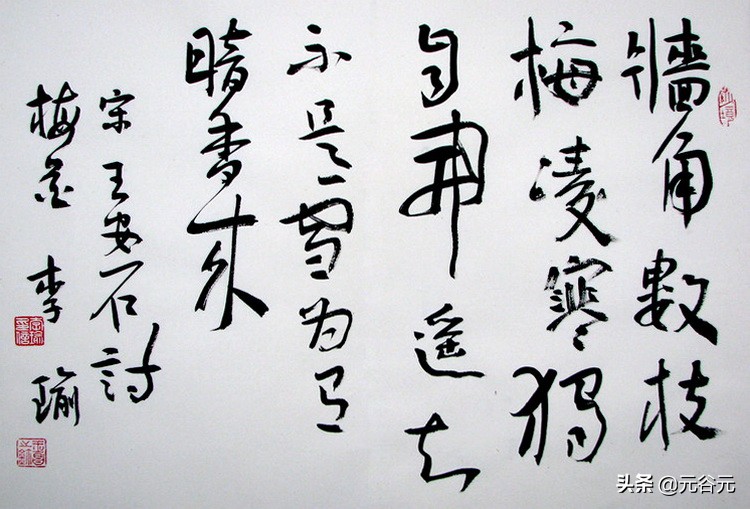 牆角數枝
梅凌寒獨
自開遥知
不是雪为有
暗香来
宋王安石詩
梅花 李瑜
头条 @元谷元